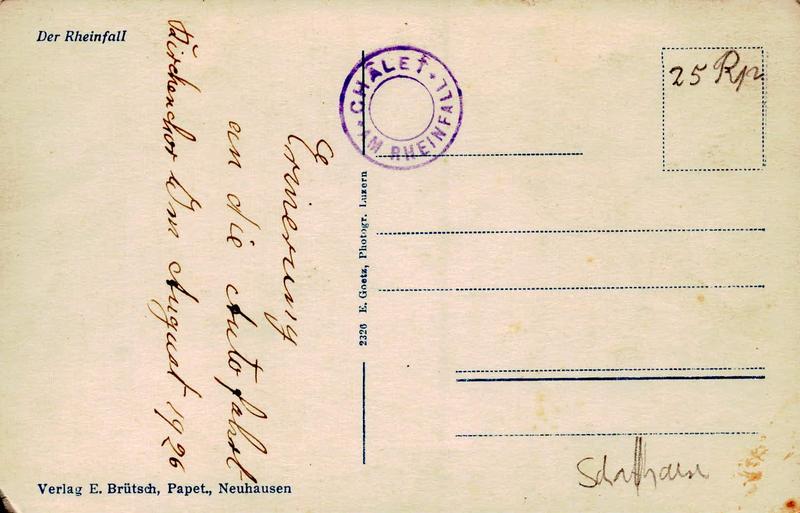 Der Rheinfall
Erinerung
an die Autofahrt
Kirchenchor im August 1926
CHÂLET
AM RHEINFALL
2326 E. Goetz, Photogr. Luzern
25 Rp
Verlag E. Brütsch, Papet., Neuhausen